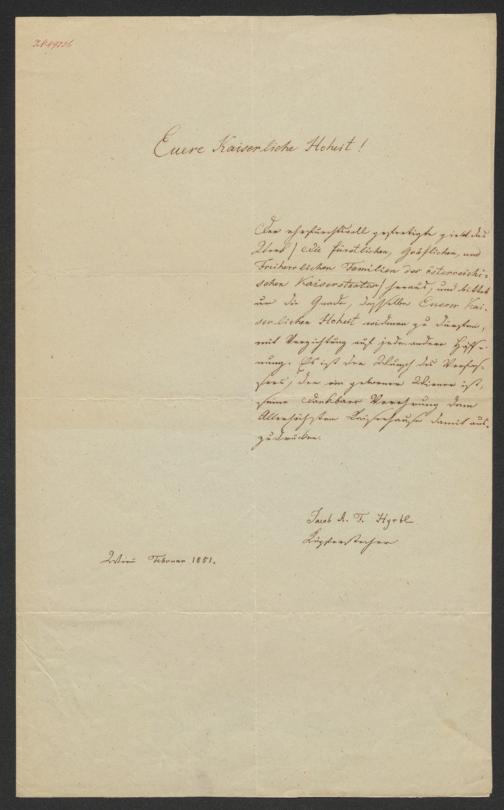 Euere Kaiserliche Hoheit!
Der ehrfurchtsvoll gefertigte giebt das
Werk / Die fürstlichen, gräflichen, und
Freiherrlichen Familien des österreichi-
schen Kaiserstaates / heraus, und bittet
um die Gnade, dasselbe Euerer Kai-
serlichen Hoheit widmen zu dürfen,
mit Verzichtung auf jede andere Hoff-
nung. Es ist der Wunsch des Verfas-
sers, der ein geborner Wiener ist,
seine dankbare Verehrung dem
Allerhöchsten Kaiserhause damit aus-
zudrücken.
Jacob A. F. Hyrtl
Kupferstecher
Wien Februar 1851.